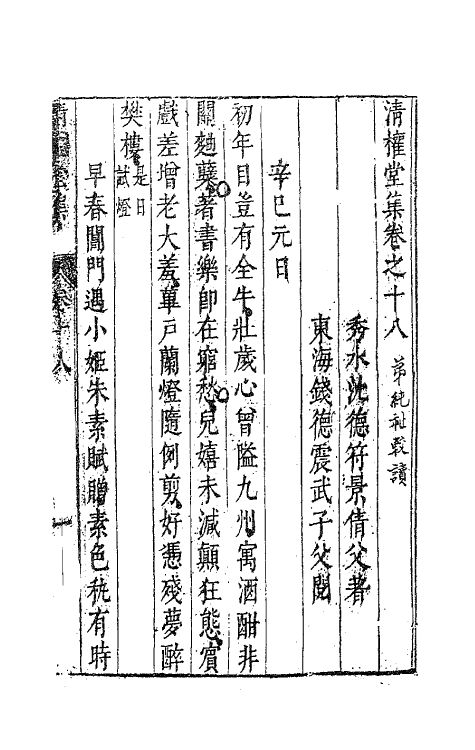 清權堂集卷之十八 弟純祉較讀
秀水沈德符景倩父著
東海錢德震武子父閱
辛巳元日
初年目豈有全牛壯歲心曾隘九州寓酒酣非
關麯蘖著書樂卽在窮愁兒嬉未減顛狂態賓
戲差增老大羞蓽戶蘭燈隨例剪好憑殘夢醉
樊樓是日試燈
早春閶門遇小姬朱素賦贈素色秾有時